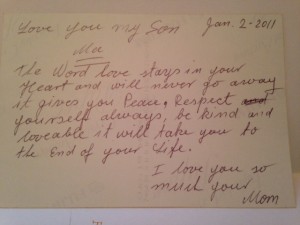 Love you my Son Jan. 2-2011
Ma
The Word love stays in your
Heart and will never go away
it gives you Peace, Respect and
yourself always, be kind and
loveable it will take you to
the End of your Life.
I love you so
much your
Mom